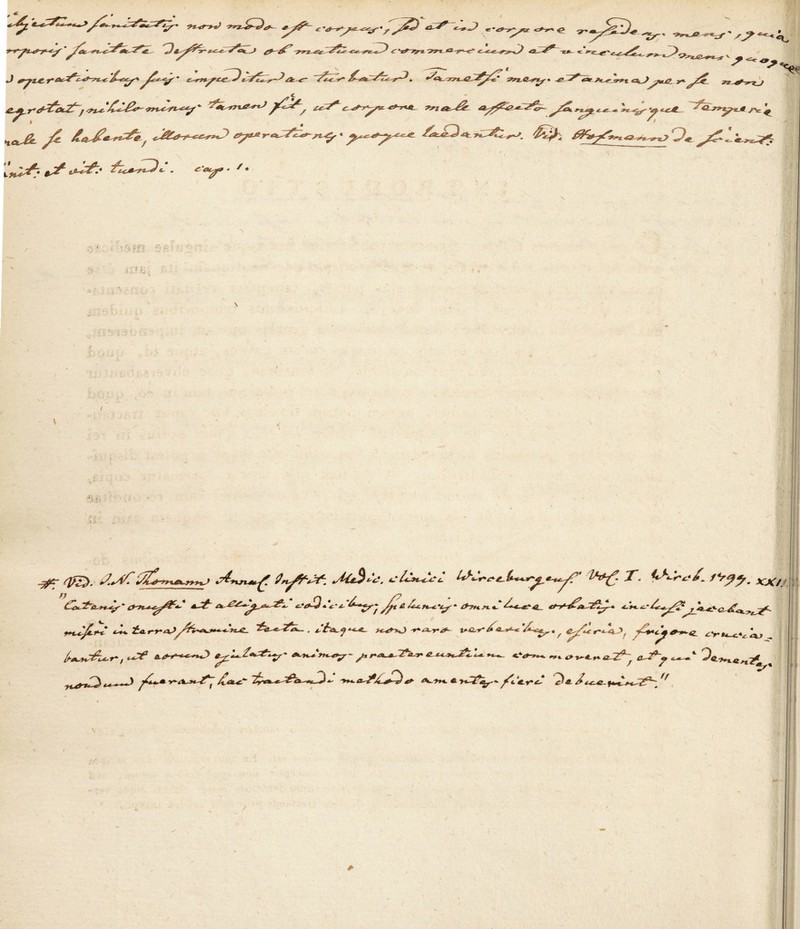 subjectum sanitatis non modo est corpus, sed et in corpore residens mens, quia
corporis sanitate destructa ob mutuum commercium et vinculum mens quoque
operationibus suis impeditur ac turbatur. Tametsi mens et anima per se non
aegrotat, nihilominus tamen fit, ut corpore male affecto sanguinisque temperie
male se habente, illorum operationes quoque laedantur. Vid. Hofmann de scient:
init: et vit: tuendi. cap. 1.
#. Vid. J. N. Thomann Annal. Instit. Medic. clinici Wirceburgens. Vol. I. Wirceb. 1799. XXII.
"Catenis onusti et alligati codicibus, speluncis omni luce orbatis inclusi jacebant
miseri in terra stramine tecta. itaque non raro verberibus, esurie, frigore crucia-
bantur, ut eorum ejulatus animos praetereuntium commoveret, et qui dementes
nondum fuerant, hac tractandi methodo amentes fieri debuerint."